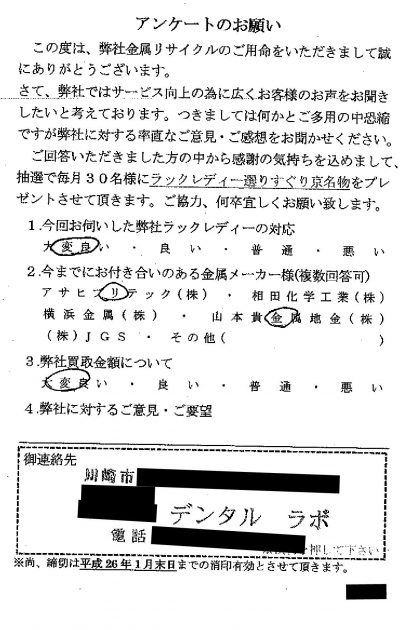 アンケートのお願い
この度は、弊社金属リサイクルのご用命をいただきまして誠
にありがとうございます。
さて、弊社ではサービス向上の為に広くお客様のお声をお聞き
したいと考えております。つきましては何かとご多用の中恐縮
ですが弊社に対する率直なご意見・ご感想をお聞かせください。
ご回答いただきました方の中から感謝の気持ちを込めまして、
抽選で毎月30名様にラックレディー選りすぐり京名物をプレ
ゼントさせて頂きます。ご協力、何卒宜しくお願い致します。
1.今回お伺いした弊社ラックレディーの対応
大変良い ・ 良い ・ 普通 ・ 悪い
2.今までにお付き合いのある金属メーカー様(複数回答可)
アサヒプリテック(株) ・ 相田化学工業(株)
横浜金属(株) ・ 山本貴金属地金(株)
(株)JGS ・ その他( )
3.弊社買取金額について
大変良い ・ 良い ・ 普通 ・ 悪い
4.弊社に対するご意見・ご要望
御連絡先
川崎市
デンタル ラボ
電話
押して下さい
※尚、締切は平成26年1月末日までの消印有効とさせて頂きます。